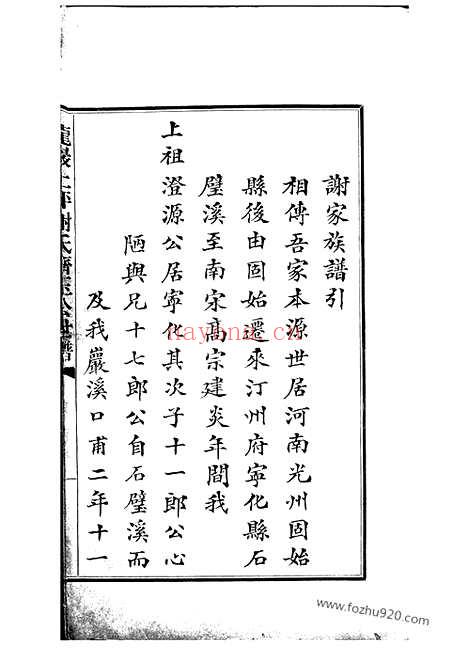 謝家族譜引
相傳吾家本源世居河南光州固始
縣後由固始遷來汀州府寧化縣石
壁溪至南宋高宗建炎年間我
上祖澄源公居寧化其次子十一郎公心
陋與兄十七郎公自石璧溪而
及我巖溪口甫二年十一
龍巖上坪謝氏
公世譜
nayona.cn
www.fozhu920.com